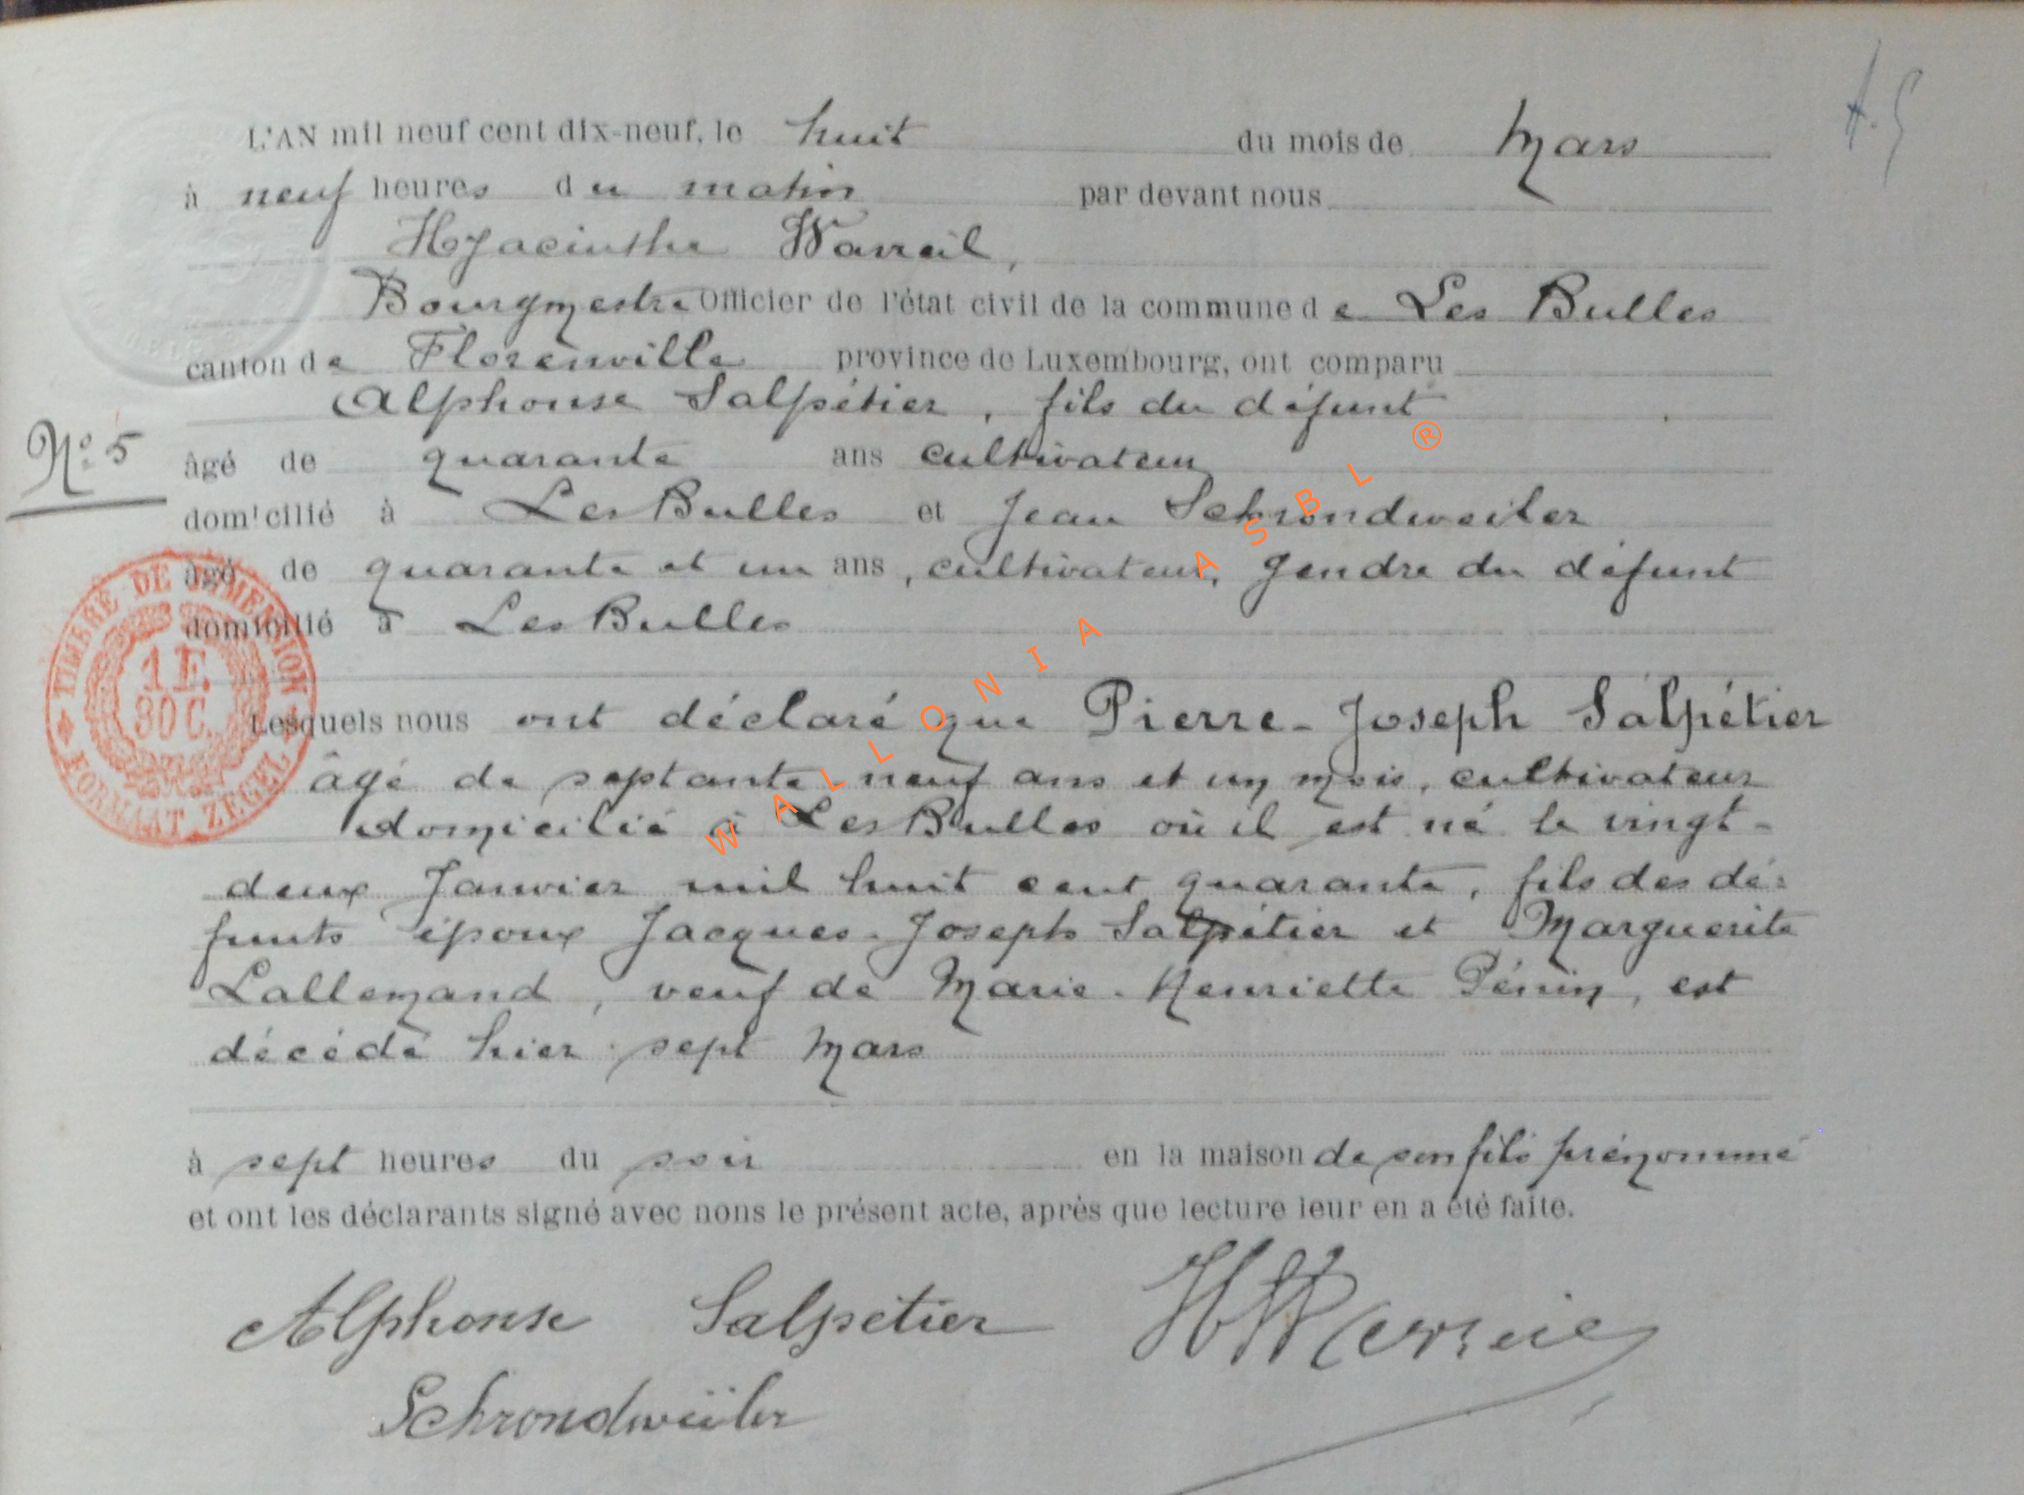 A. S
L'AN mil neuf cent dix-neuf, le huit du mois de Mars
à neuf heures du matin par devant nous
Hyacinthe Wavreil,
Bourgmestre Officier de l'état civil de la commune de Les Bulles
canton de Florenville province de Luxembourg, ont comparu
Alphonse Salpétier, fils du défunt
N° 5
âgé de quarante ans cultivateur
domicilié à Les Bulles et Jean Schrondweiler
âgé de quarante et un ans, cultivateur, gendre du défunt
domicilié à Les Bulles
TIMBRE DE DIMENSION
1 F.
30 C.
FORMAAT ZEGEL
Lesquels nous ont déclaré que Pierre-Joseph Salpétier
âgé de septante neuf ans et un mois, cultivateur
domicilié à Les Bulles où il est né le vingt-
deux Janvier mil huit cent quarante, fils des dé-
funts époux Jacques-Joseph Salpétier et Marguerite
Lallemand, veuf de Marie-Henriette Pénin, est
décédé hier sept Mars
à sept heures du soir en la maison de son fils prénommé
et ont les déclarants signé avec nous le présent acte, après que lecture leur en a été faite.
Alphonse Salpetier
Schrondweiler
WALLONIA ASBL ®